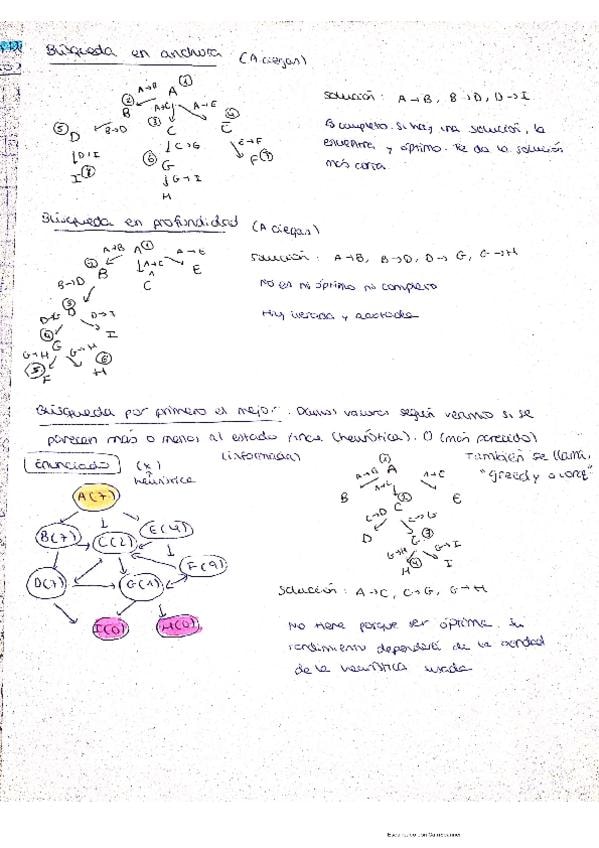 Búsqueda en anchura (A ciegas)
A→B A (1)
(2) B A→C A→E
(3) C (4) E
(5) D B→D C→G E→F
D→I (6) G F (7)
I (8) G→I
H
solución: A→B, B→D, D→I
Es completo. Si hay una solución, la
encuentra y óptimo. Te da la solución
más corta.
Búsqueda en profundidad (A ciegas)
A→B A (1) A→E
(2) B A→C E
B→D C
(3) D
D→G D→I
(4) G I
G→H G→H
(5) F (6) H
solución: A→B, B→D, D→G, G→H
No es ni óptimo ni completo
Hay iterada y acotada
Búsqueda por primero el mejor. Damos valores según veamos si se
parecen más o menos al estado final (heurística). 0 (más parecido)
(informada)
También se llama
"Greedy
Enunciado (x)
heurística
A(7)
B(7) C(2) E(4)
D(7) G(1) F(9)
I(0) H(0)
A
A→B A→C A→E
B C E
C→D C→G
D G
G→H G→I
H I
solución: A→C, C→G, G→H
No tiene porque ser óptima. Su
rendimiento dependerá de la calidad
de la heurística usada